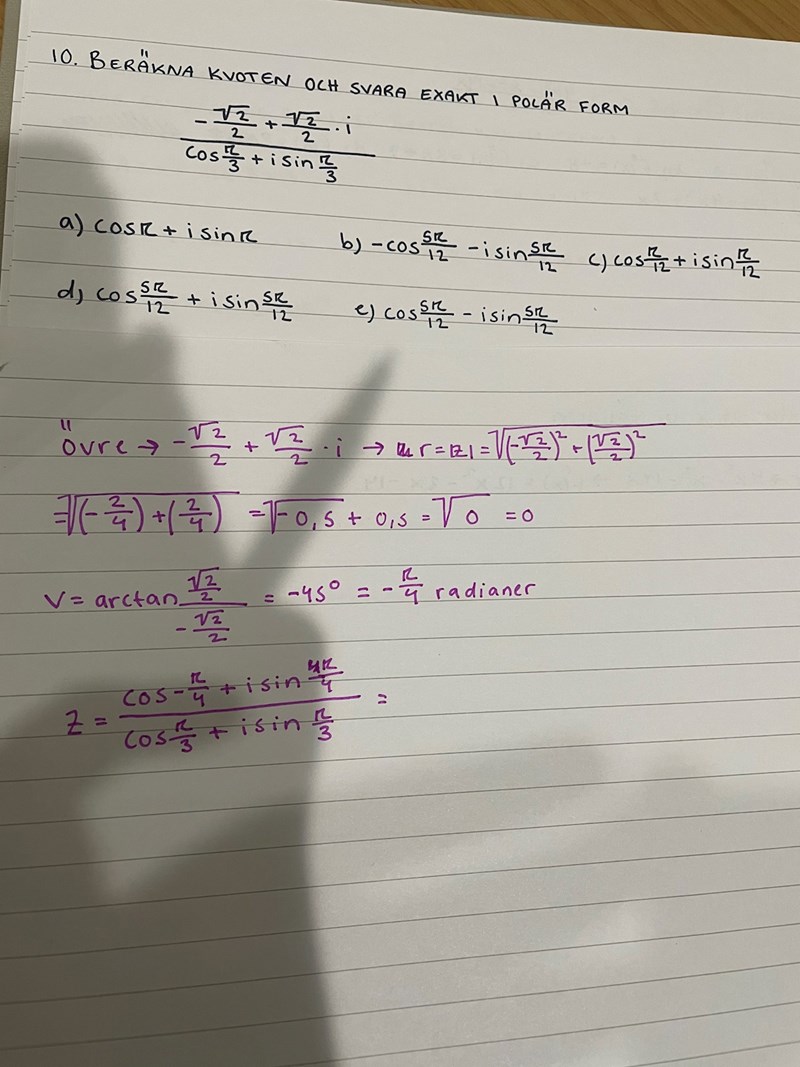 10. BERÄKNA KVOTEN OCH SVARA EXAKT I POLÄR FORM
(-√2/2 + √2/2 · i) / (cos π/3 + i sin π/3)
a) cos π + i sin π b) -cos 5π/12 - i sin 5π/12 c) cos π/12 + i sin π/12
d) cos 5π/12 + i sin 5π/12 e) cos 5π/12 - i sin 5π/12
Övre → -√2/2 + √2/2 · i → r = |z| = √((-√2/2)² + (√2/2)²)
= √((-2/4) + (2/4)) = √-0,5 + 0,5 = √0 = 0
V = arctan (√2/2)/(-√2/2) = -45° = -π/4 radianer
Z = (cos -π/4 + i sin π/4) / (cos π/3 + i sin π/3) =